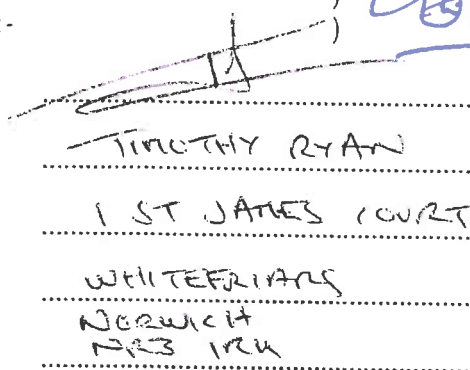 TIMOTHY RYAN
1 ST JAMES COURT
WHITEFRIARS
NORWICH
NR3 1RU